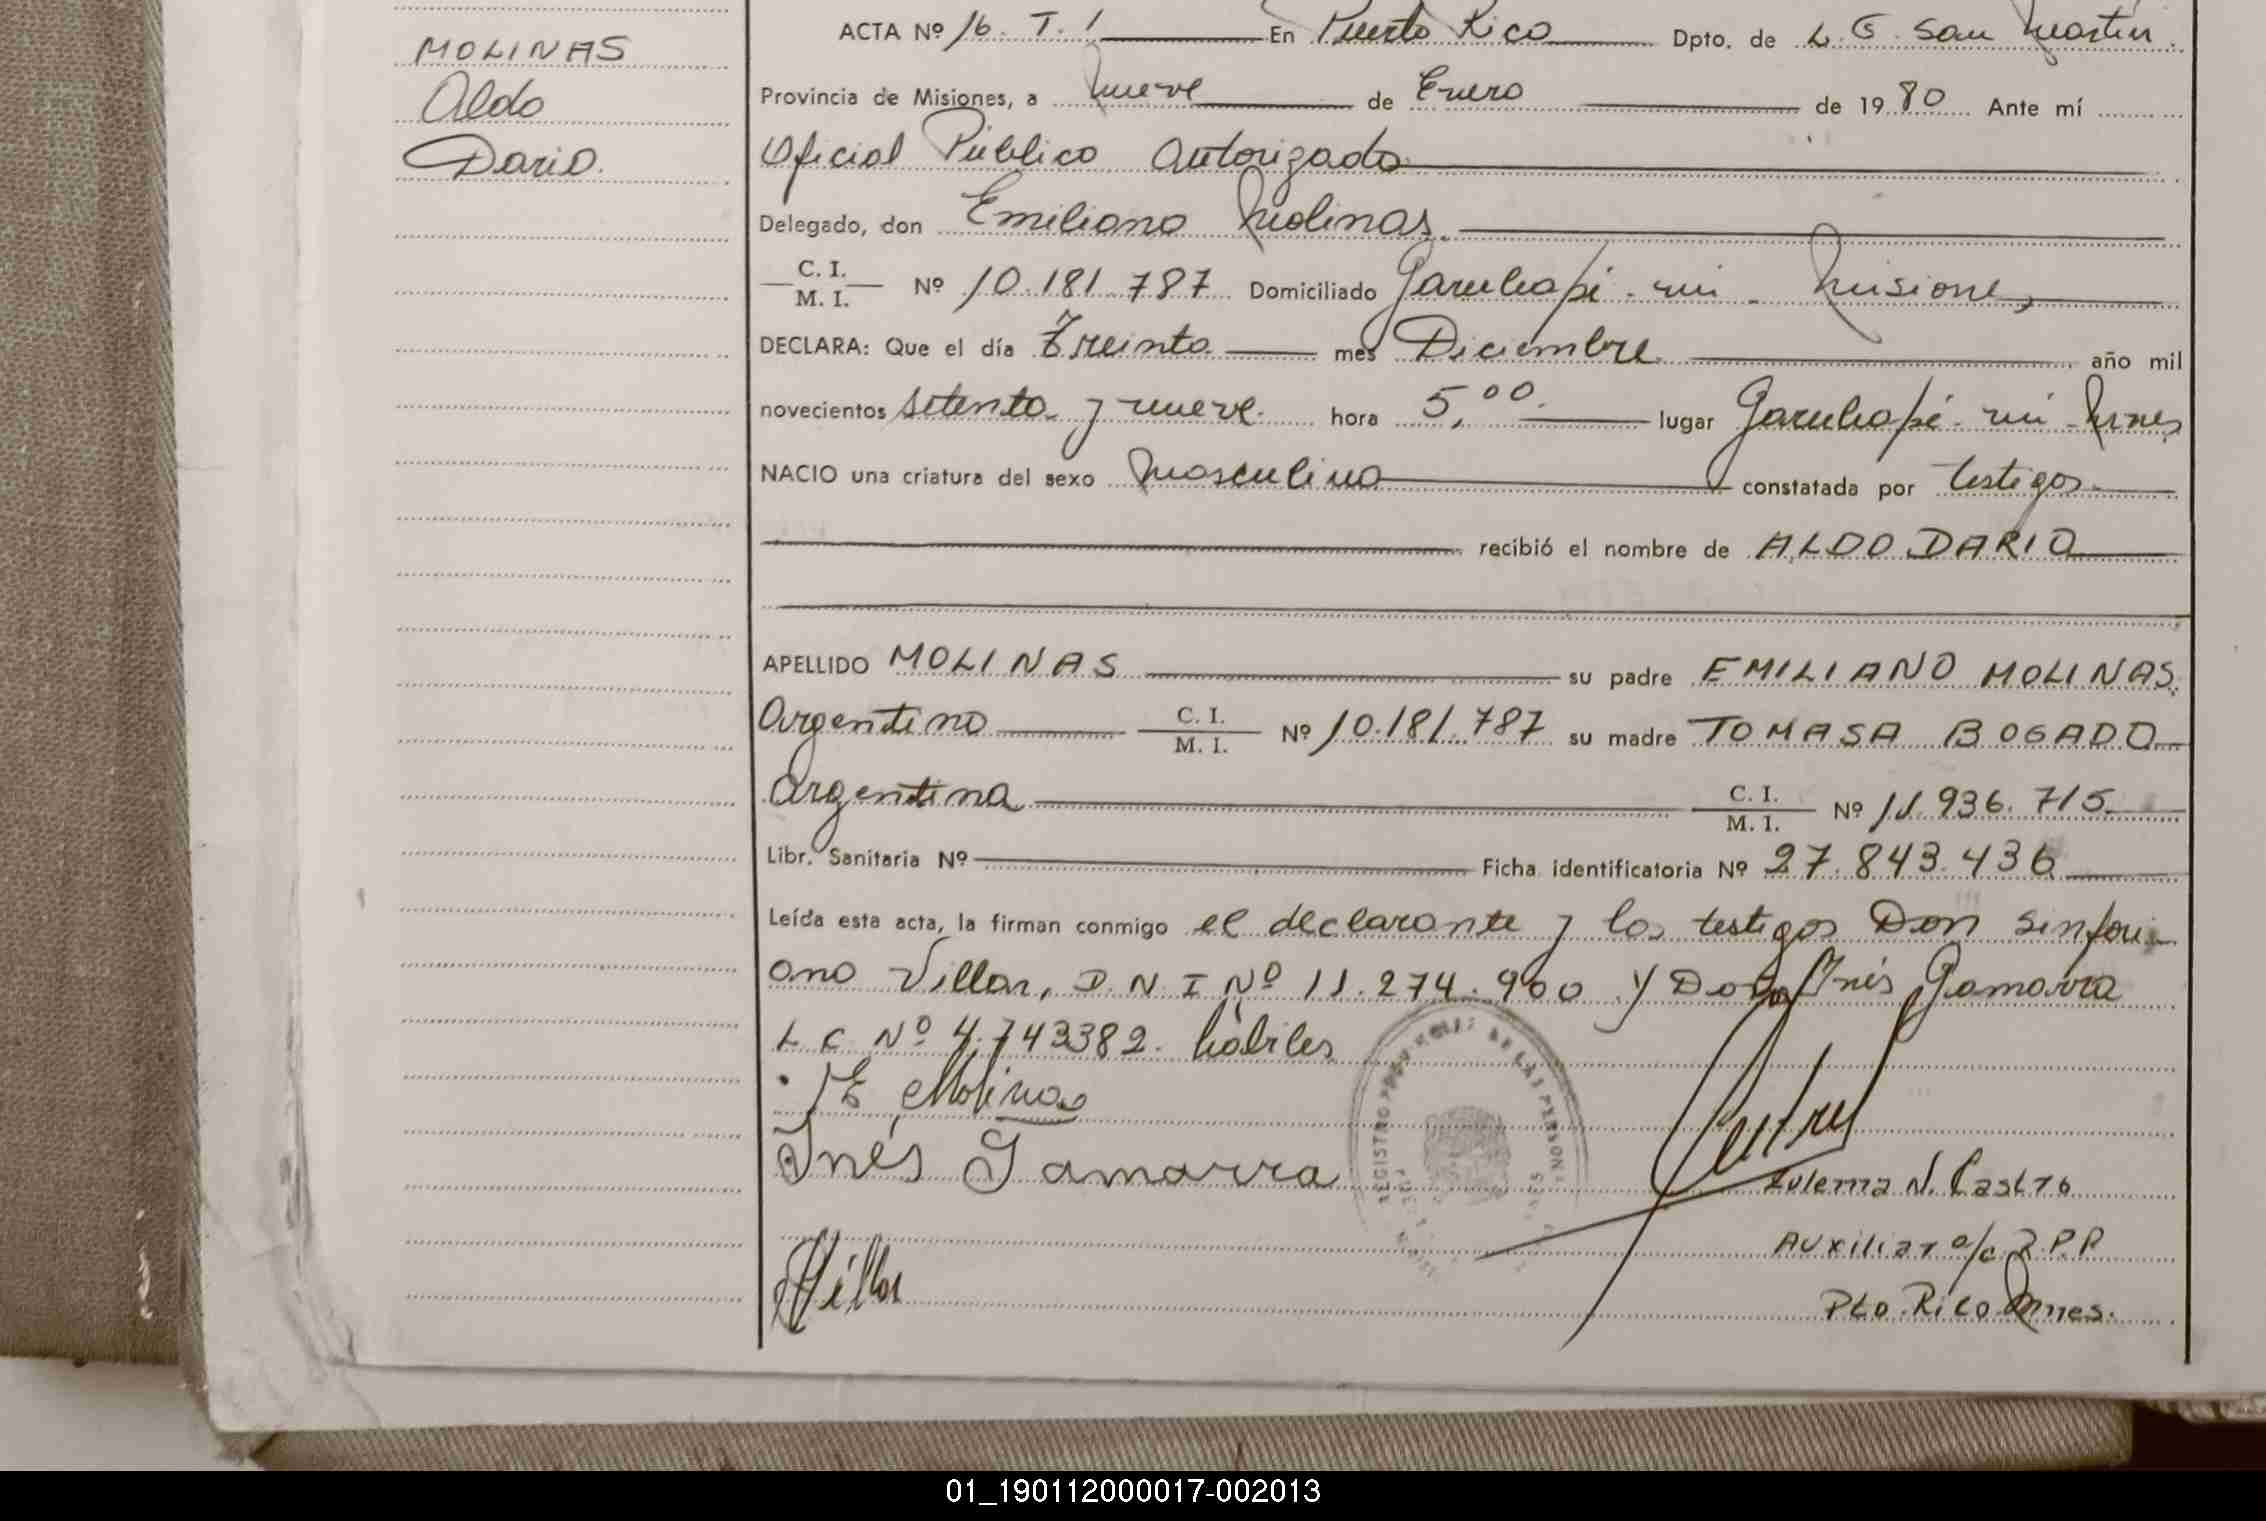 MOLINAS
Aldo
Dario.
ACTA Nº 16. T. 1 En Puerto Rico Dpto. de L. G. San Martin.
Provincia de Misiones, a nueve de Enero de 1980 Ante mí
Oficial Público Autorizado
Delegado, don Emiliano Molinas.
C. I.
M. I. Nº 10.181.787 Domiciliado Garuhapé - mi - Misiones
DECLARA: Que el día Treinta mes Diciembre año mil
novecientos setenta y nueve. hora 5,00. lugar Garuhapé - mi - Mnes
NACIO una criatura del sexo Masculino constatada por testigos
recibió el nombre de ALDO DARIO
APELLIDO MOLINAS su padre EMILIANO MOLINAS.
Argentino C. I. M. I. Nº 10.181.787 su madre TOMASA BOGADO
Argentina C. I. M. I. Nº 11.936.715
Libr. Sanitaria Nº Ficha identificatoria Nº 27.843.436
Leída esta acta, la firman conmigo el declarante y los testigos Don Sinfori-
ano Villar, D.N.I Nº 11.274.900 y Doña Inés Gamarra
L C Nº 4.743382. hábiles
E Molinas
Inés Gamarra
REGISTRO PROVINCIAL DE LAS PERSONAS
Zulema N. Castro
Auxiliar a/c R.P.P
Villar
Pto. Rico Mnes.
01_190112000017-002013